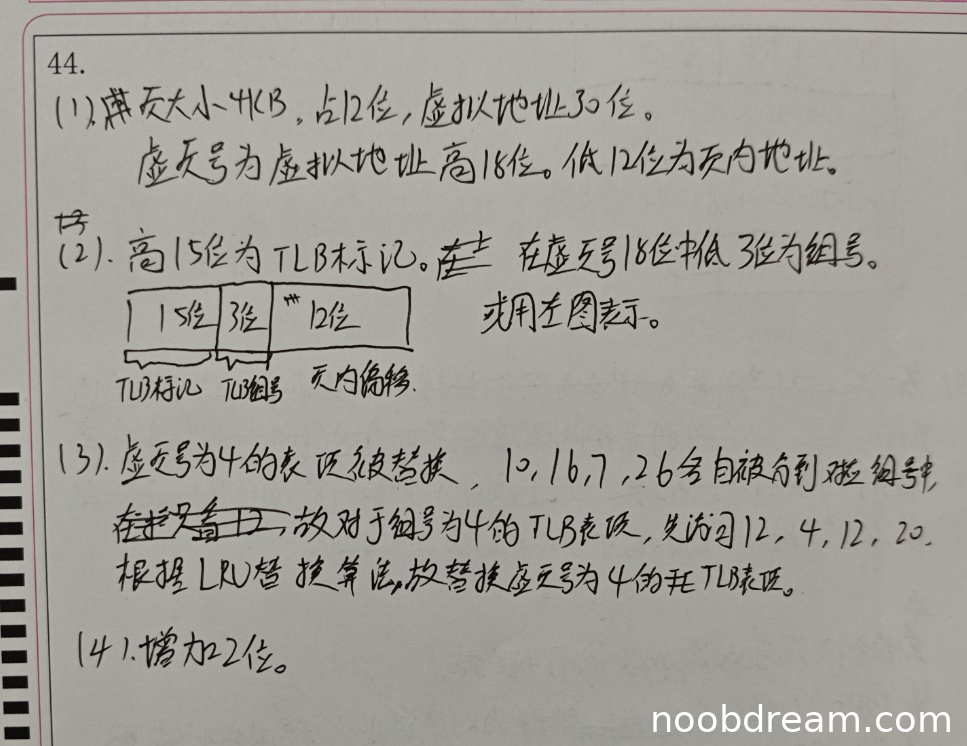 44.
(1).页大小4KB,占12位,虚拟地址30位。
虚页号为虚拟地址高18位。低12位为页内地址。
(2).高15位为TLB标记。在虚页号18位中低3位为组号。
15位 3位 12位 或用左图表示。
TLB标记 TLB组号 页内偏移.
(3).虚页号为4的表项被替换,10,16,7,26各自被分到对应组号中,
故对于组号为4的TLB表项,先访问12,4,12,20.
根据LRU替换算法,故替换虚页号为4的TLB表项。
(4).增加2位。
noobdream.com